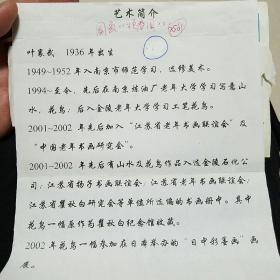 艺术简介
叶寒武 1936年出生
1949~1952年入南京市师范学习,选修美术。
1994~至今,先后在南京炼油厂老年大学学习写意山
水,花鸟;后入金陵老年大学学习工笔花鸟。
2001~2002年先后加入“江苏省老年书画联谊会”及
“中国老年书画研究会”。
2001~2002年先后有山水及花鸟作品入选金陵石化公
司;江苏省扬子书画联谊会;江苏省老年书画联谊会;
江苏省瞿秋白研究会等单位所选编的书画册中。其中
花鸟一幅原作为瞿秋白纪念馆收藏。
2002年花鸟一幅参加在日本举办的“日中彩墨画”画
展。